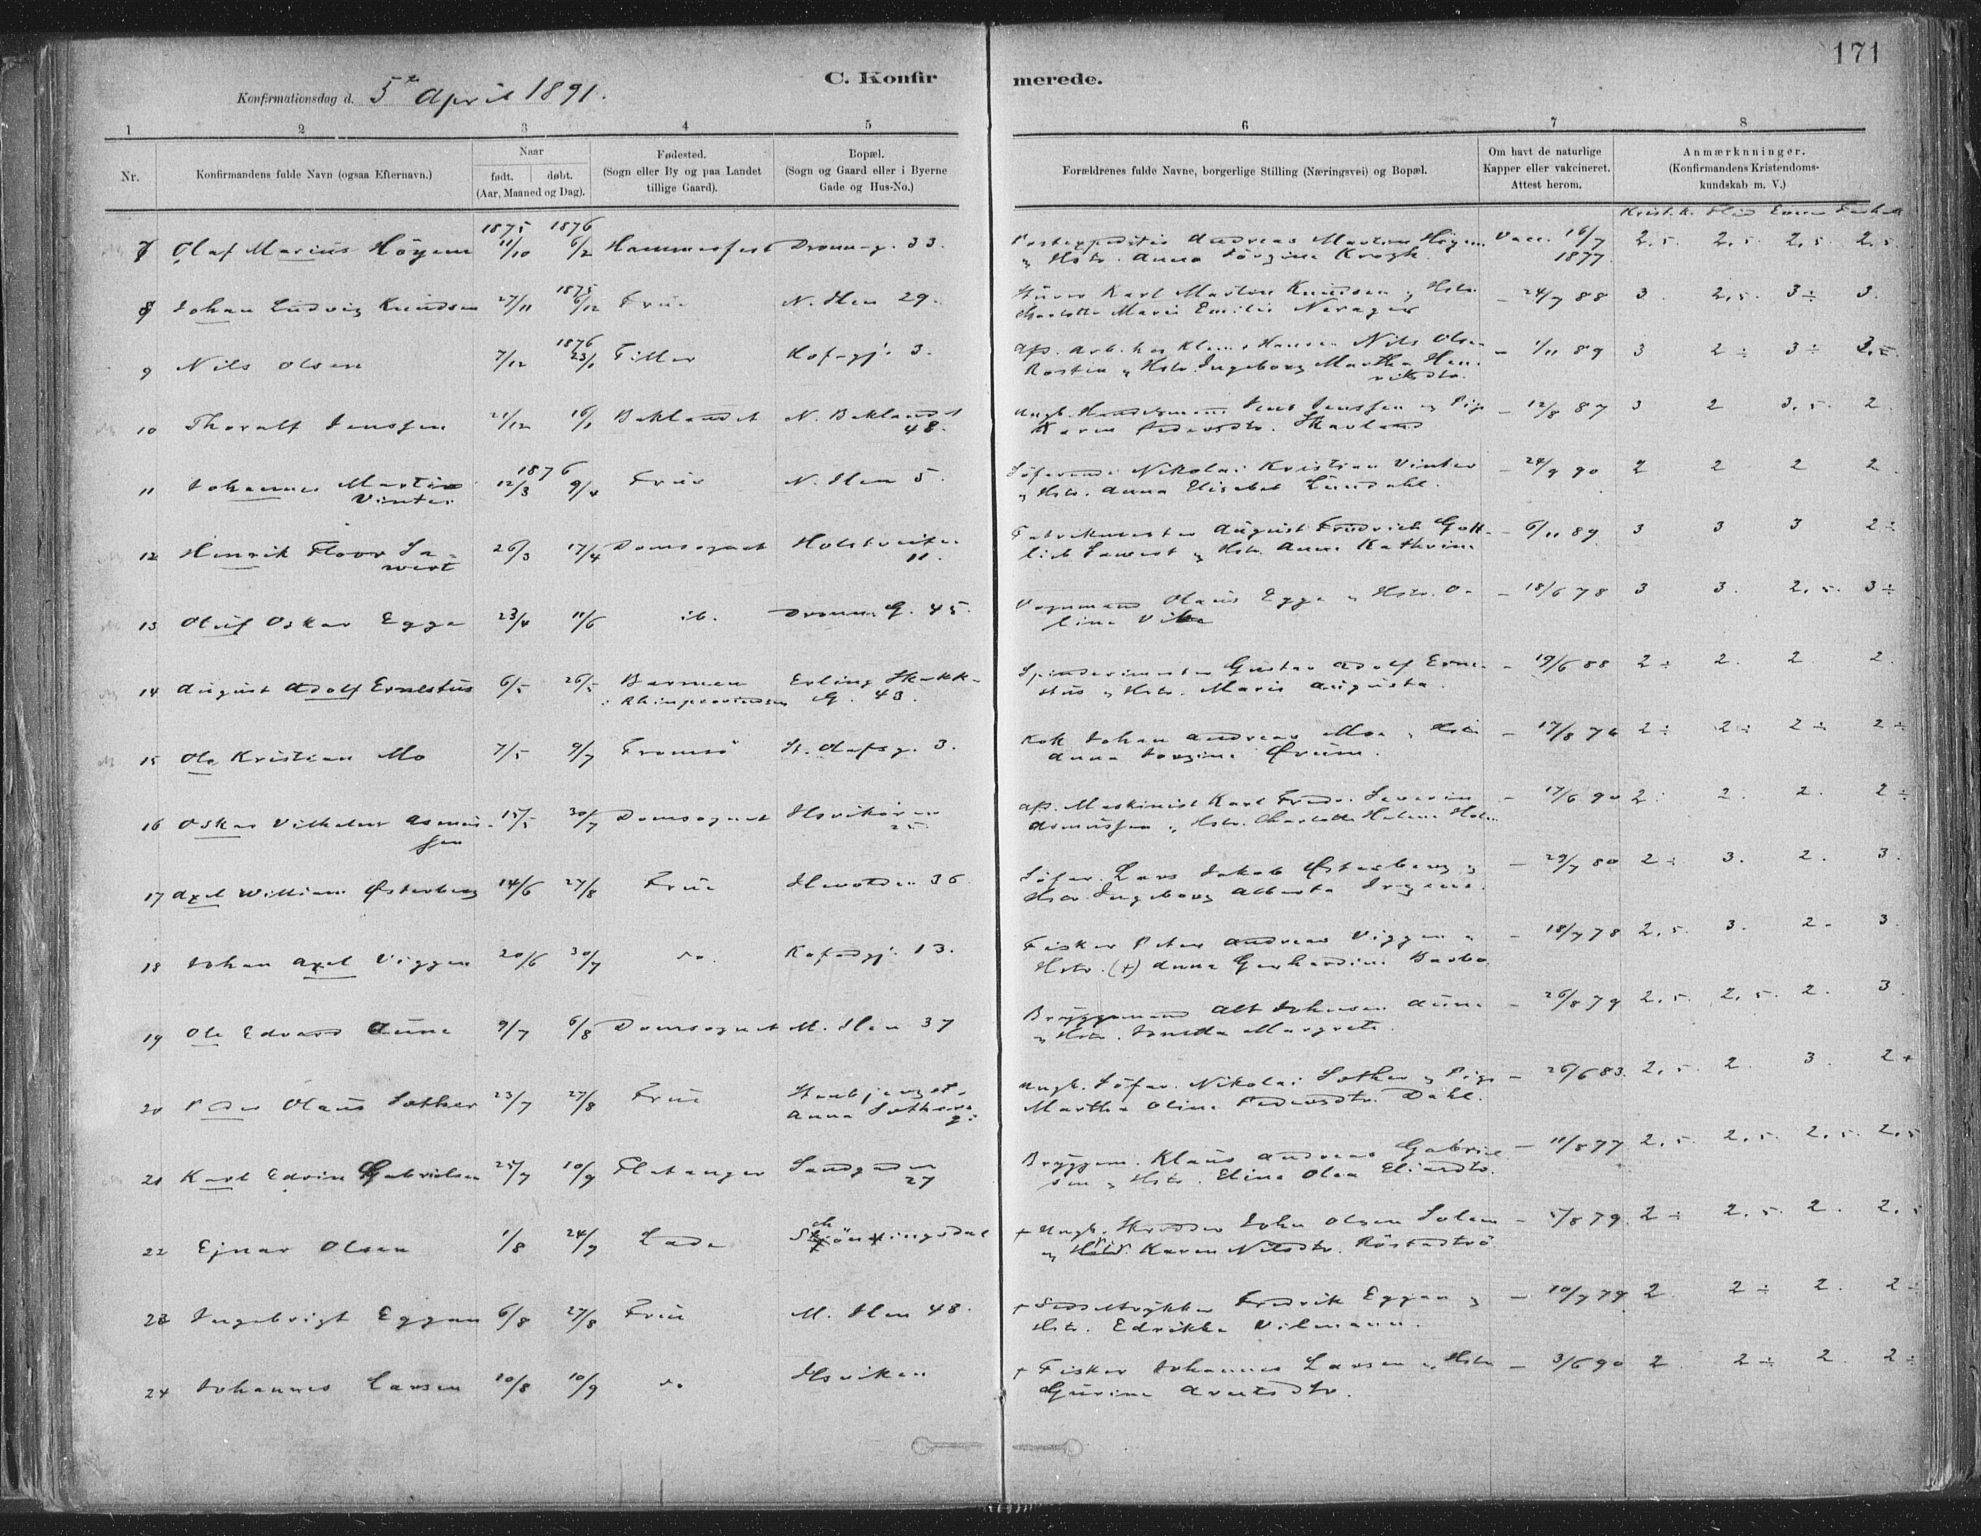 171
C. Konfirmerede.
Konfirmationsdag d. 5te April 1891.
1 2 3 4 5 6 7 8
Nr.
Konfirmandens fulde Navn (ogsaa Efternavn.)
Naar
født. døbt.
(Aar, Maaned og Dag).
Fødested.
(Sogn eller By og paa Landet
tillige Gaard).
Bopæl.
(Sogn og Gaard eller i Byerne
Gade og Hus-No.)
Forældrenes fulde Navne, borgerlige Stilling (Næringsvei) og Bopæl.
Om havt de naturlige
Kapper eller vakcineret.
Attest herom.
Anmærknninger.
(Konfirmandens Kristendoms-
kundskab m. V.)
Kristk. Flid Evner
1875 1876
7 Olaf Marius Höyem 11/10 6/2 Hammerfest Dronn.g. 33. Postexpeditör Andreas Martin Höyem Vacc. 16/7 2,5. 2,5. 2,5 2,5
„ Hstr. Anna Jörgine Krogh. 1877.
1875
8 Johan Ludvig Knudsen 27/11 6/12 Frue N. Ilen 29. Karl Martin Knudsen „ Hstr. – 24/7 88 3. 2,5. 3÷ 3.
Charlotte Marie Emilie
1876
9 Nils Olsen 7/12 23/1 Tiller Kofgj. 3. afs. Arb. hos Klaus Hansen Nils Olsen – 1/11 89 3 2÷ 3÷
Rosten „ Hstr. Ingeborg Martha Hen-
riksdtr.
10 Thoralf Jenssen 21/12 16/1 Baklandet N. Baklandet Ungk. Handelsmand Jens Jenssen og Pige – 12/8 87 3 2 3,5. 2.
48. Karen Pedersdtr. Skavland
1876
11 Johannes Martin 12/3 9/4 Frue N. Ilen 5. Söfarende Nikolai Kristian Vinter – 24/9 90 2 2 2 2.
Vinter „ Hstr. Anna Elisabet Lundahl.
12 Henrik Floor La- 26/3 17/4 Domsognet Holstveiten August Fredrich Gott- – 6/11 89 3 3 3 2÷
wert 11. lieb Lawert „ Hstr. Anne Kathrine
13 Oluf Oskar Egge 23/4 11/6 ib. Dronn. G. 45. Vognmand Olaus Egge „ Hstr. O- – 18/6 78 3 3. 2,5. 3÷
line Vike
14 August Adolf Ernestus 6/5 26/5 Barmen Erling Skakk- Spinderimester Gustav Adolf Erne- – 19/6 88 2÷ 2. 2 2.
i Rhinprovindsen G. 43. stus „ Hstr. Marie Augusta.
15 Ole Kristian Mo 7/5 9/7 Tromsö St. Olafsg. 3. Kok Johan Andreas Moe „ Hstr. – 17/8 76 2÷ 2÷ 2÷ 2÷
Anna Jörgine Örum.
16 Oskar Vilhelm Asmus- 15/5 30/7 Domsognet Ilsvikören afs. Maskinist Karl Fredr. Severin – 17/6 90 2÷ 2. 2. 2÷
sen 25 Asmussen „ Hstr. Charlotte Helene
17 Axel William Østerberg 14/6 27/8 Frue Ilevolden 36 Söfar. Lars Jakob Østerberg „ – 29/7 80 2÷ 3. 2. 3.
Hstr. Ingeborg Alberta
18 Johan Axel Viggen 20/6 30/7 do. Kofodgj. 13. Fisker Peter Andreas Viggen „ – 18/7 78 2,5. 3. 2. 3.
Hstr. (+) Anna Gerhardine
19 Ole Edvard Aune 9/7 6/8 Domsognet M. Ilen 37 Bryggemand Alt Johnsen Aune – 26/8 79 2,5. 2,5. 2. 3.
„ Hstr. Margrete.
20 Peder Olaus Sother 23/7 27/8 Frue Stenbjerget, Ungk. Söfar. Nikolai Sother „ Pige – 26/6 83. 2,5. 2. 3. 2+
Anna Sothers g: Martha Oline Pedersdtr. Dahl.
21 Karl Edvin Gabrielsen 25/7 10/9 Flatanger Sandgaden Bryggem. Klaus Andreas Gabriel- – 11/8 77 2,5. 2,5. 2,5. 2,5
27 sen „ Hstr. Eline Olea
22 Ejnar Olsen 1/8 24/9 Lade Schönningsdal + Ungk. Skrædder John Olsen Solem – 5/8 79. 2÷ 2,5. 2. 2,5
„ Karen Nilsdtr. Röstadtrö
23 Ingebrigt Eggan 6/8 27/8 Frue M. Ilen 48. + Fredrik Eggan „ – 10/7 79 2. 2÷ 2. 2÷
Hstr. Edrikke Vilmann.
24 Johannes Larsen 10/8 10/9 do Ilsviken + Fisker Johannes Larsen „ Hstr. – 3/6 90 2. 2÷ 2. 2÷
Gurine Arntsdtr.